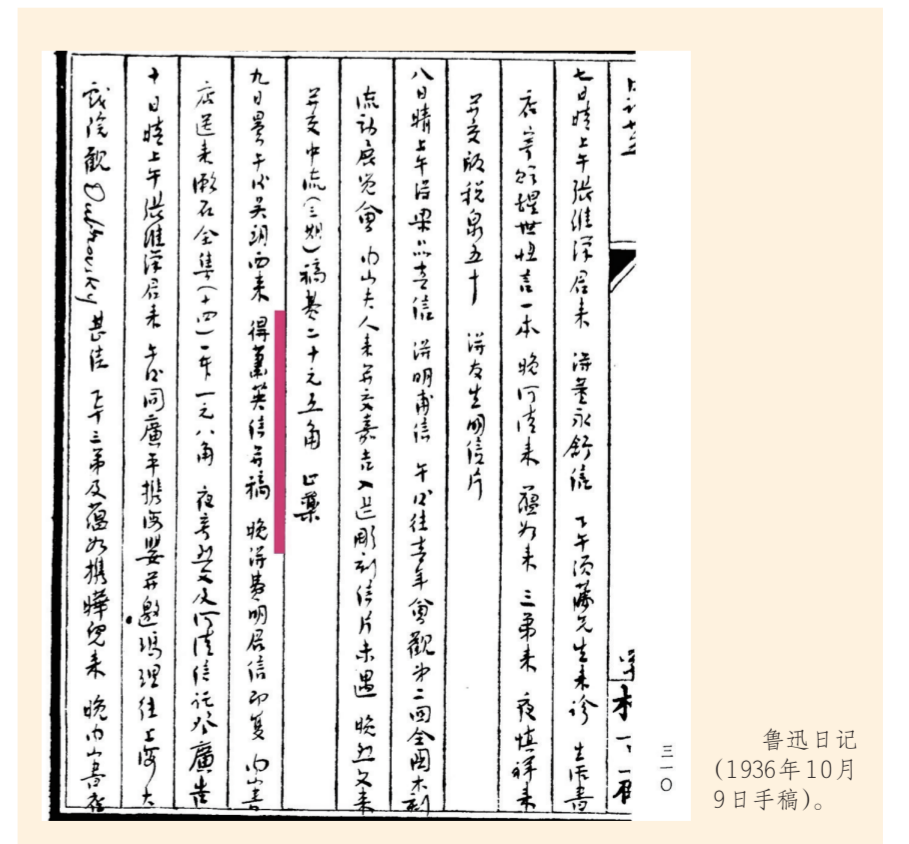 七日晴上午张维汉君来 得董永舒信 下午须藤先生来诊 生活書
店寄贈醒世恒言一本 晚河清来 蕴如来 三弟来 夜慎祥来
并交版税泉五十 得友生明信片
八日晴上午得梁品青信 得明甫信 午後往青年會觀第二回全國木刻
流動展览會 内山夫人来并交嘉吉入選彫刻信片未遇 晚烈文来
并交中流（三期）稿费二十元五角 止藥
九日曇午後吴朗西来 得蕭英信并稿 晚得费明君信即复 内山書
店送来漱石全集（十四）一本一元八角 夜寄烈文及河清信託登廣告
十日晴上午张维漢君来 午後同廣平携海嬰并邀瑪理往上海大
戯院觀Dubrovsky甚佳 下午三弟及蕴如携曄兒来 晚内山書店
三一〇
鲁迅日记
(1936年10月
9日手稿)。